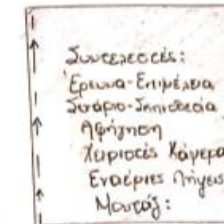 Συντελεστές:
Έρευνα-Επιμέλεια
Σενάριο-Σκηνοθεσία
Αφήγηση
Χειριστές Κάμερα
Εναέριες Λήψεις
Μοντάζ: